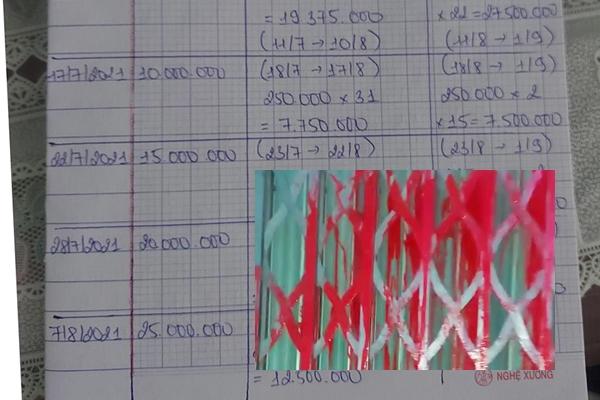 = 19.375.000
× 21 = 27.500.000
(11/7 → 10/8)
(11/8 → 1/9)
17/7/2021 10.000.000 (18/7 → 17/8) (18/8 → 1/9)
250.000 × 31 250.000 × 2
= 7.750.000 × 15 = 7.500.000
22/7/2021 15.000.000 (23/7 → 22/8) (23/8 → 1/9)
28/7/2021 20.000.000
7/8/2021 25.000.000
= 12.500.000
NGHỆ XƯƠNG